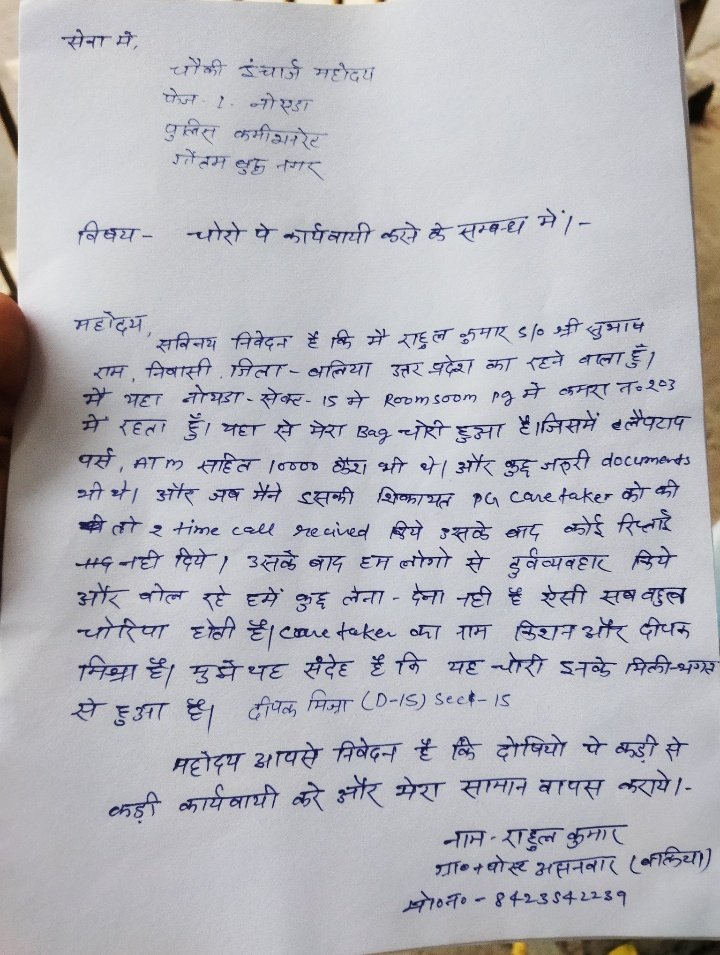 सेना में,
चौकी इंचार्ज महोदय
फेज-1- नोएडा
पुलिस कमीश्नरेट
गौतम बुद्ध नगर
विषय - चोरो पे कार्यवायी करने के सम्बन्ध में।-
महोदय,
सविनय निवेदन है कि मै राहुल कुमार S/o श्री सुभाष
राम, निवासी जिला - बलिया उत्तर प्रदेश का रहने वाला हूँ।
मै यहा नोयडा - सेक्ट- 15 मे Roomsoom pg मे कमरा न० 203
में रहता हूँ। यहा से मेरा Bag चोरी हुआ है। जिसमें लैपटाप
पर्स, ATM सहित 10000 कैश भी थे। और कुछ जरुरी documents
भी थे। और जब मैने इसकी शिकायत PG Caretaker को की
तो 2 time call recived किये उसके बाद कोई रिप्लाई
नही दिये। उसके बाद हम लोगो से दुर्वव्यवहार किये
और बोल रहे हमें कुछ लेना - देना नही है ऐसी सब बहुत
चोरिया होती है। Caretaker का नाम किशन और दीपक
मिश्रा है। मुझे यह संदेह है कि यह चोरी इनके मिली-भगत
से हुआ है। दीपक मिश्रा (D-15) Sect-15
महोदय आपसे निवेदन है कि दोषियो पे कड़ी से
कड़ी कार्यवायी करे और मेरा सामान वापस कराये।-
नाम - राहुल कुमार
ग्रा० + पोस्ट असनवार (बलिया)
मो०न० - 8423542239